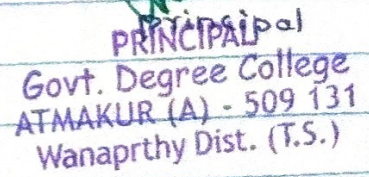 Principal
PRINCIPAL
Govt. Degree College
ATMAKUR (A) - 509 131
Wanaprthy Dist. (T.S.)